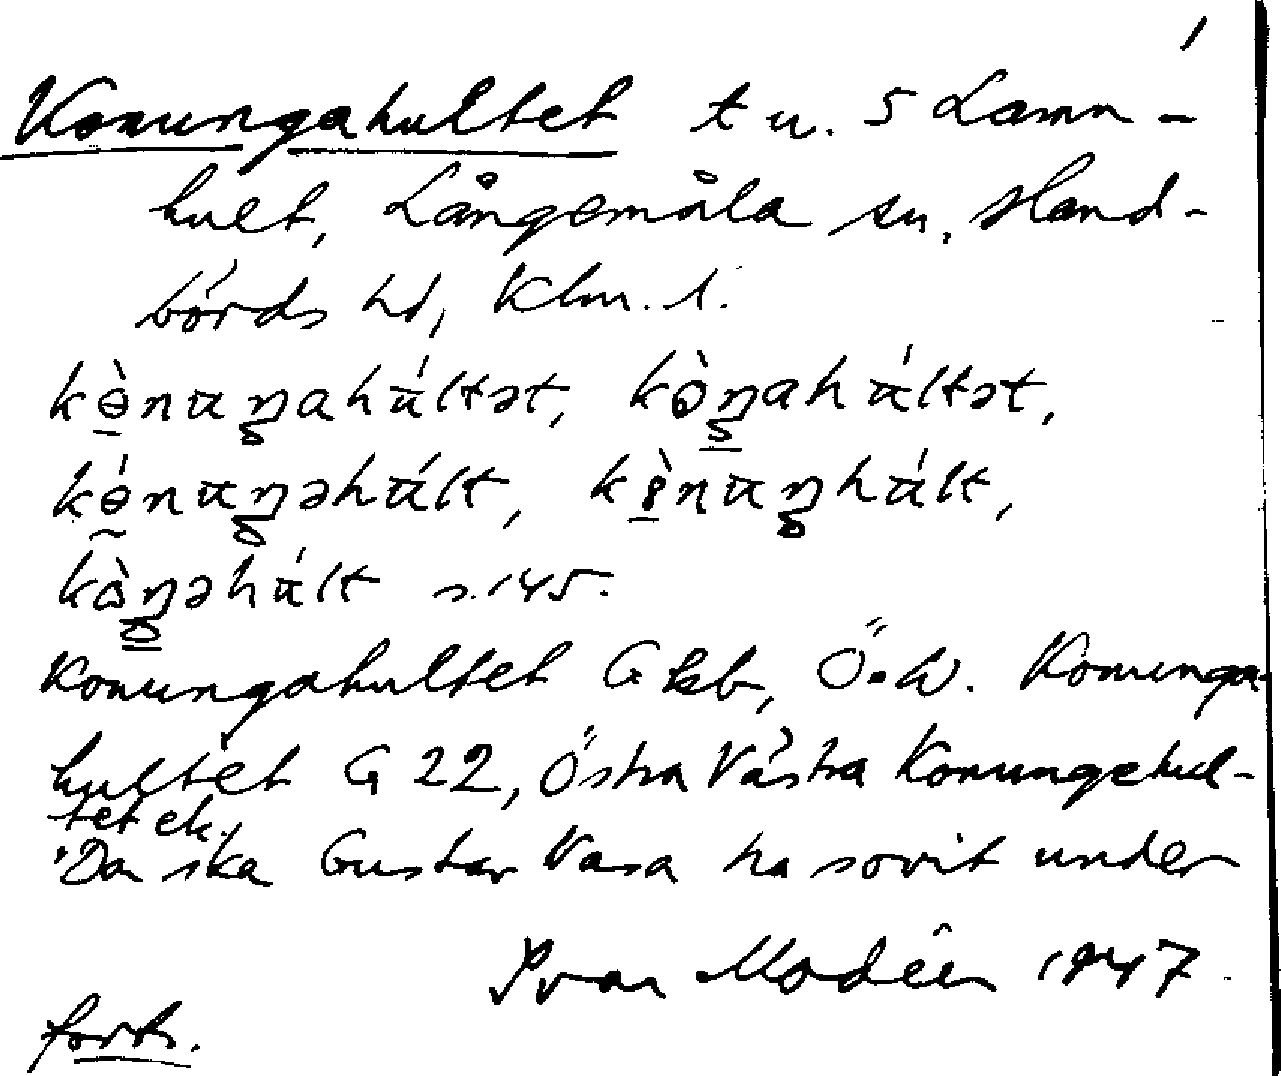 1
Konungahultet t u. 5 Lamn-
hult, Långemåla sn, Hand-
börds hd, Klm. l.
kɵ̀nuŋahúltət, kòŋahúltət,
kɵ́nuŋəhúlt, kɵ̀nuŋhúlt,
kòŋəhúlt s. 145.
Konungahultet Gkb, Ö.W. Konunga-
hultet G 22, Östra Västra Konungahul-
tet ek.
"Da ska Gustav Vasa ha sovit under
Ivar Modéer 1947
forts.